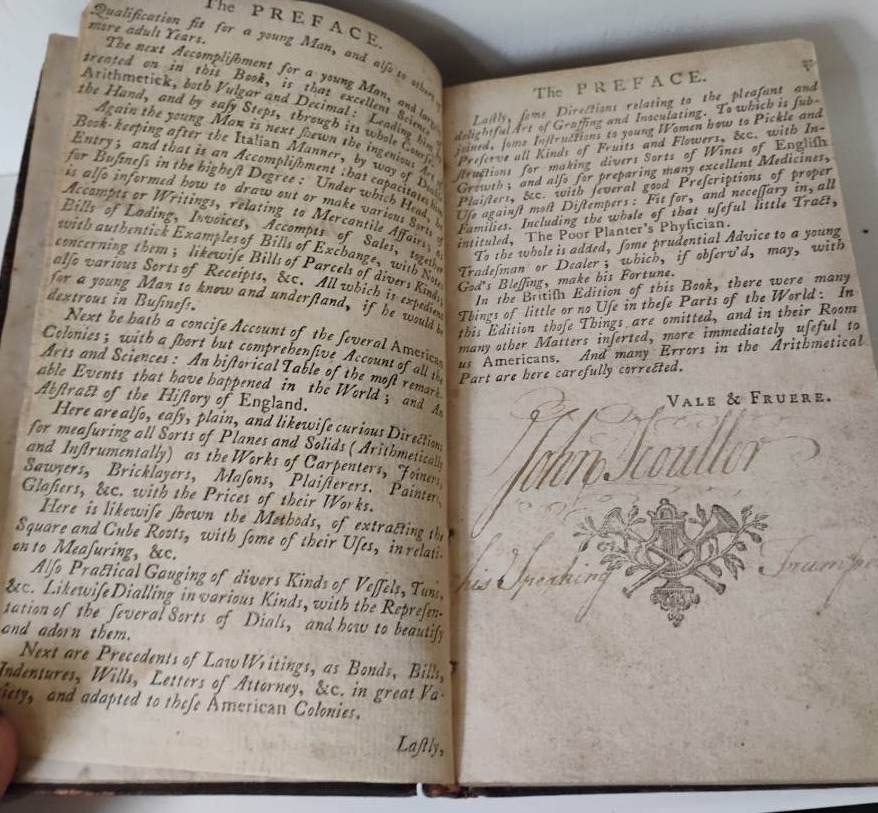 The PREFACE.
Qualification fit for a young Man, and also to others of
more adult Years.
The next Accomplishment for a young Man, and largely
treated on in this Book, is that excellent Science of
Arithmetick, both Vulgar and Decimal: Leading him by
the Hand, and by easy Steps, through its whole Course.
Again the young Man is next shewn the ingenious Art of
Book-keeping after the Italian Manner, by way of Double
Entry; and that is an Accomplishment that capacitates him
for Business in the highest Degree: Under which Head, he
is also informed how to draw out or make various Sorts of
Accompts or Writings, relating to Mercantile Affairs; as
Bills of Lading, Invoices, Accompts of Sales, together
with authentick Examples of Bills of Exchange, with Notes
concerning them; likewise Bills of Parcels of divers Kinds;
also various Sorts of Receipts, &c. All which is expedient
for a young Man to know and understand, if he would be
dextrous in Business.
Next he hath a concise Account of the several American
Colonies; with a short but comprehensive Account of all the
Arts and Sciences: An historical Table of the most remark-
able Events that have happened in the World; and An
Abstract of the History of England.
Here are also, easy, plain, and likewise curious Directions
for measuring all Sorts of Planes and Solids (Arithmetically
and Instrumentally) as the Works of Carpenters, Joiners,
Sawyers, Bricklayers, Masons, Plaisterers. Painters,
Glasiers, &c. with the Prices of their Works.
Here is likewise shewn the Methods, of extracting the
Square and Cube Roots, with some of their Uses, in relati-
on to Measuring, &c.
Also Practical Gauging of divers Kinds of Vessels, Tuns,
&c. Likewise Dialling in various Kinds, with the Represen-
tation of the several Sorts of Dials, and how to beautify
and adorn them.
Next are Precedents of Law Writings, as Bonds, Bills,
Indentures, Wills, Letters of Attorney, &c. in great Va-
riety, and adapted to these American Colonies.
Lastly,
The PREFACE.
Lastly, some Directions relating to the pleasant and
delightful Art of Graffing and Inoculating. To which is sub-
joined, some Instructions to young Women how to Pickle and
Preserve all Kinds of Fruits and Flowers, &c. with In-
structions for making divers Sorts of Wines of English
Growth; and also for preparing many excellent Medicines,
Plaisters, &c. with several good Prescriptions of proper
Use against most Distempers: Fit for, and necessary in, all
Families. Including the whole of that useful little Tract,
intituled, The Poor Planter's Physician.
To the whole is added, some prudential Advice to a young
Tradesman or Dealer; which, if observ'd, may, with
God's Blessing, make his Fortune.
In the British Edition of this Book, there were many
Things of little or no Use in these Parts of the World: In
this Edition those Things are omitted, and in their Room
many other Matters inserted, more immediately useful to
us Americans. And many Errors in the Arithmetical
Part are here carefully corrected.
VALE & FRUERE.
John Scoullor
his Speaking Trumpe